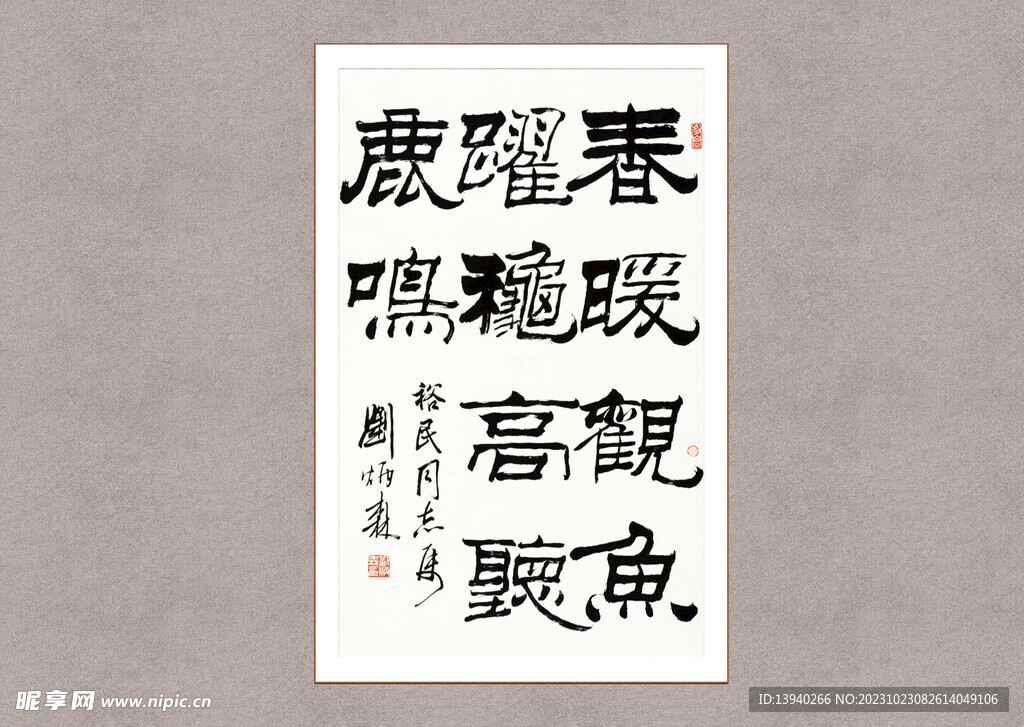 春暖觀魚
躍龝高聽
鹿鳴
裕民同志屬
劉炳森
昵享网 www.nipic.cn
ID:13940266 NO:20231023082614049106